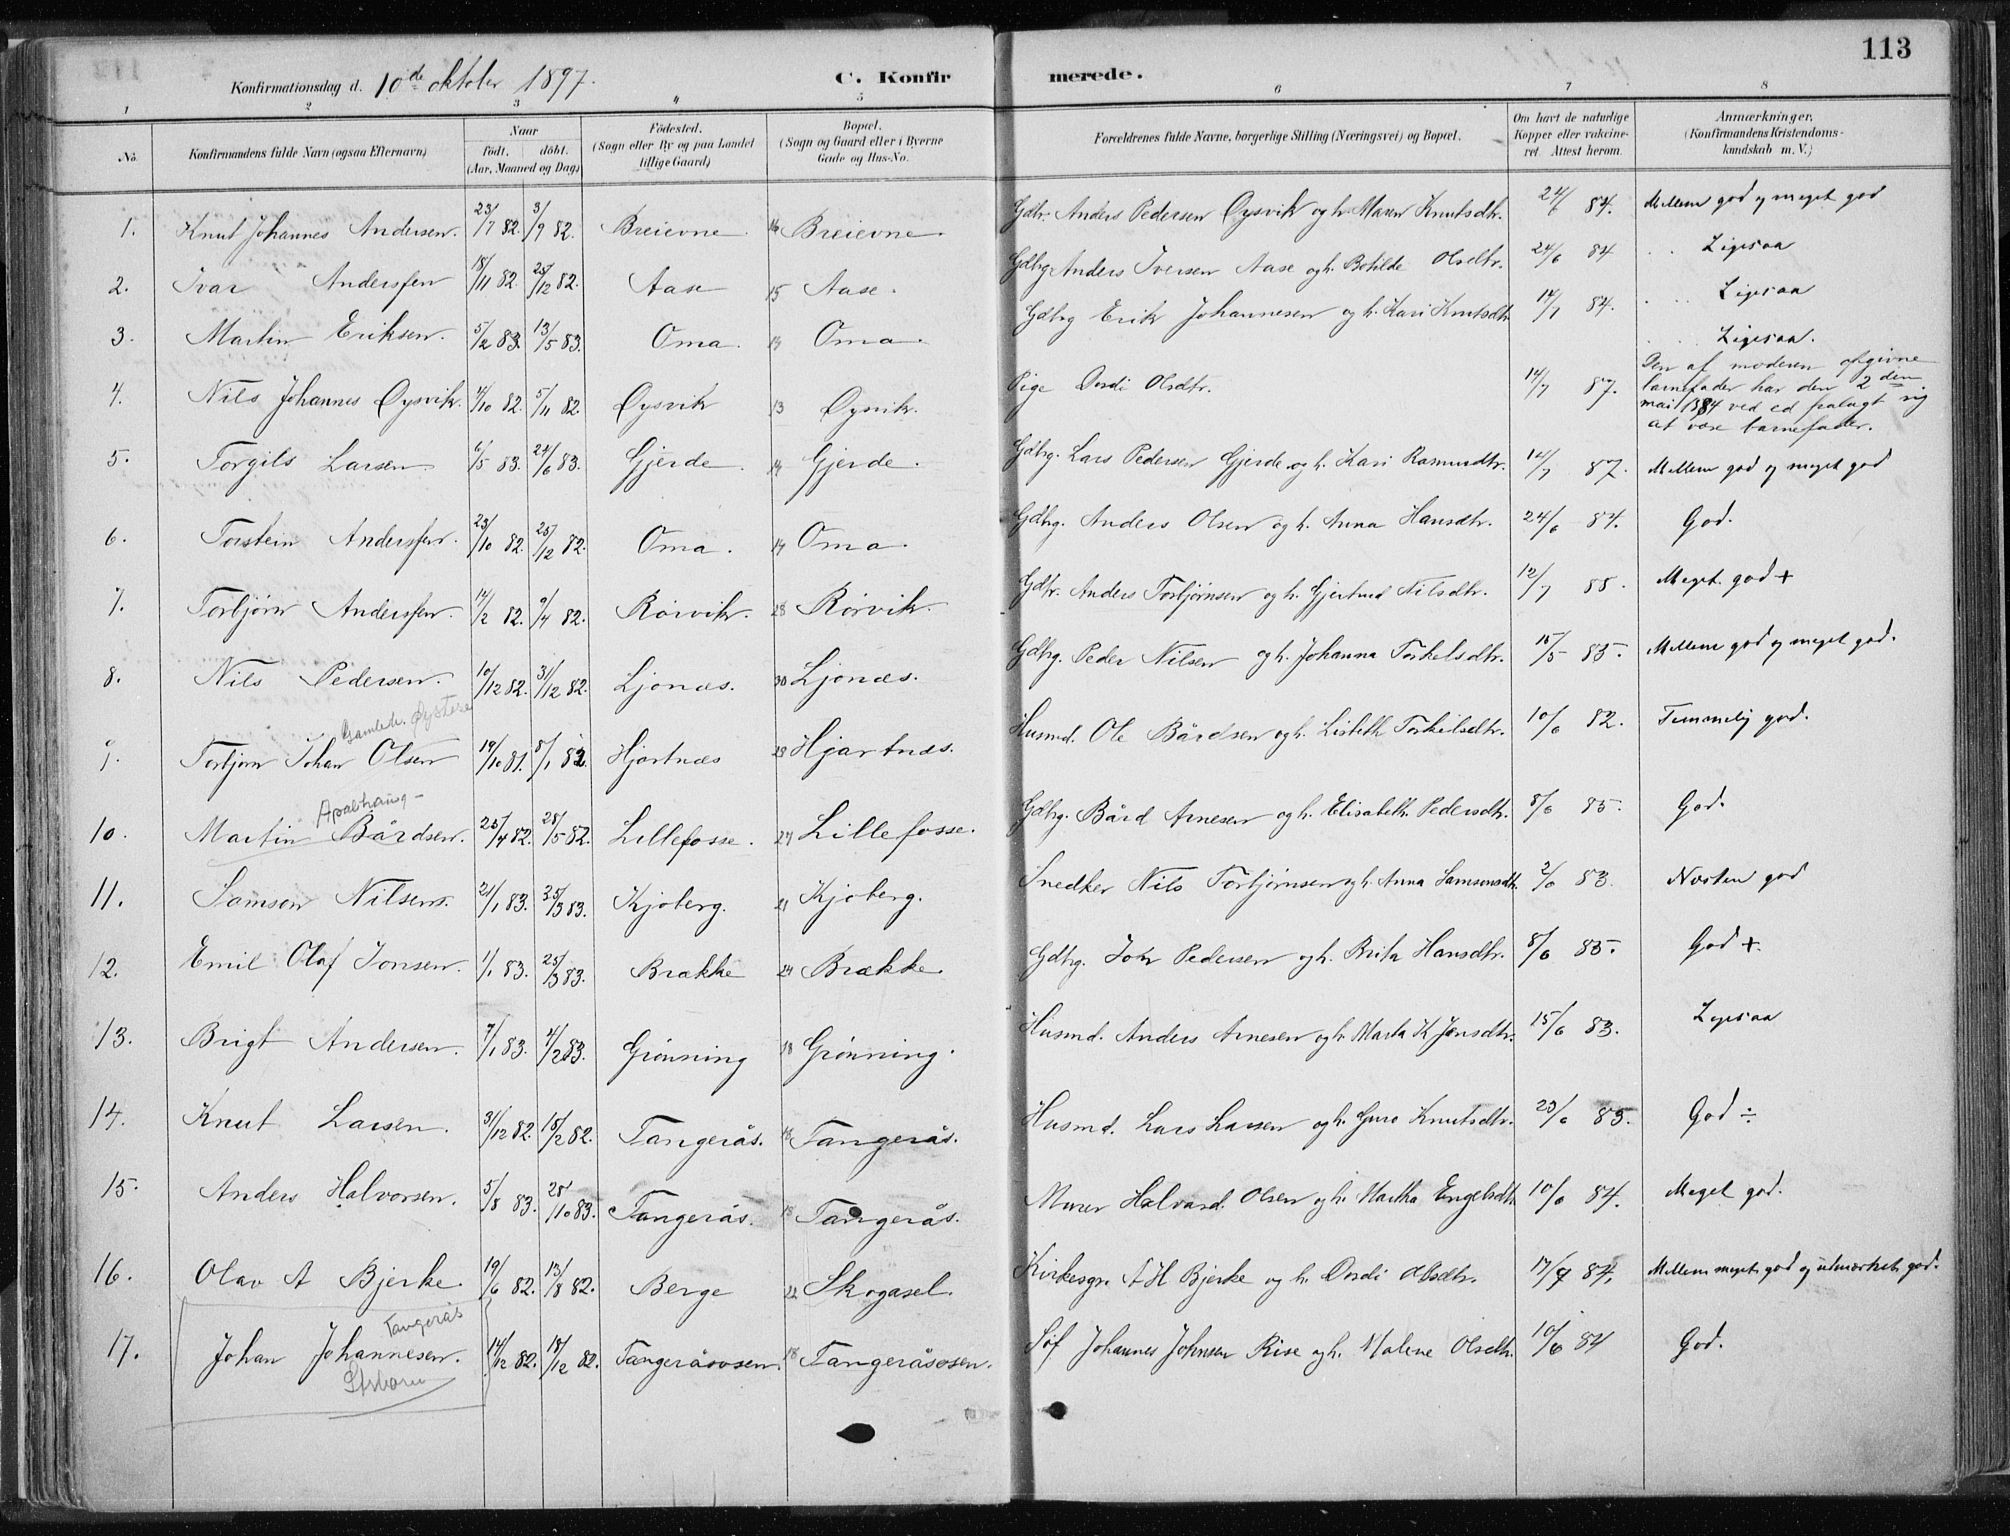 113
Konfirmationsdag d. 10de oktober 1897.
C. Konfirmerede.
1 2 3 4 5 6 7 8
No.
Konfirmandens fulde Navn (ogsaa Efternavn)
Naar
født. døbt.
(Aar, Maaned og Dag)
Fødested.
(Sogn eller By og paa Landet
tillige Gaard)
Bopæl.
(Sogn og Gaard eller i Byerne
Gade og Hus-No.
Forældrenes fulde Navne, borgerlige Stilling (Næringsvei) og Bopæl.
Om havt de naturlige
Kopper eller vakcine-
ret. Attest herom.
Anmærkninger,
(Konfirmandens Kristendoms-
kundskab m. V.)
1. Knut Johannes Andersen. 23/7 82. 3/9 82. Breievne. 14 Breievne. Gdbr. Anders Pedersen Øysvik og h. Maren Knutsdtr. 24/6 84. Mellem god og meget god
2. Ivar Andersen 18/11 82. 25/12 82. Aase 15 Aase. Gdbrg Anders Iversen Aase og h. Botilde Olsdtr. 24/6 84 Ligesaa
3. Martin Eriksen. 5/2 83. 13/5 83. Oma. 13 Oma. Gdbrg Erik Johannesen og h. Kari Knutsdtr 14/7 84. Ligesaa
4. Nils Johannes Øysvik. 4/10 82. 5/11 82. Øysvik 13 Øysvik. Pige Dordi Olsdtr. 14/7 87. Ligesaa.
Den af moderen opgivne
barnefader har den 2den
mai 1884 ved ed fralagt sig
at være barnefader.
5. Torgils Larsen 6/5 83. 24/6 83. Gjerde. 14 Gjerde. Gdbrg. Lars Pedersen Gjerde og h. Kari Rasmusdtr. 14/7 87. Mellem god og meget god
6. Torstein Andersen. 23/10 82. 25/12 82. Oma. 14 Oma. Gdbrg. Anders Olsen og h. Anna Hansdtr. 24/6 84. God.
7. Torbjørn Andersen. 14/2 82. 9/4 82. Rørvik. 28 Rørvik. Gdbr. Anders Torbjørnsen og h. Gjertrud Nilsdtr. 12/7 88. Meget god +
8. Nils Pedersen. 10/12 82. 31/12 82. Ljonæs. 30 Ljonæs. Gdbrg. Peder Nilsen og h. Johanna Torkelsdtr. 15/5 85. Mellem god og meget god.
Gamleh. Øystese
9. Torbjørn Johan Olsen 19/10 81. 8/1 82. Hjartnæs 29 Hjartnæs. Husmd. Ole Bårdsen og h. Lisbeth Torkilsdtr. 10/6 82. Temmelig god.
Apalhaug
10. Martin Bårdsen. 25/4 82. 28/5 82. Lillefosse. 27 Lillefosse. Gdbrg. Bård Arnesen og h. Elisabeth Pedersdtr. 8/6 85. God.
11. Samson Nilsens. 21/1 83. 25/3 83. Kjøberg. 21 Kjøberg. Snedker Nils Torbjørnsen og h. Anna Samsonsdtr. 2/6 83. Næsten god
12. Emil Olaf Jonsen. 1/1 83. 25/3 83. Brække 24 Brække. Gdbrg. Jon Pedersen og h. Brita Hansdtr. 8/6 85. God +.
13. Brigt Andersen. 7/1 83. 4/2 83. Grønning 18 Grønning. Husmd. Anders Arnesen og h. Marta K Jensdtr. 15/6 83. Ligesaa
14. Knut Larsen. 31/12 82. 18/2 82. Tangerås. 18 Tangerås. Husmd. Lars Larsen og h. Guro Knutsdtr. 23/6 83. God ÷
15. Anders Halvorsen. 5/8 83. 28/10 83. Tangerås. 18 Tangerås. Murer Halvard Olsen og h. Martha Engelsdtr 10/6 84. Meget god.
16. Olav A Bjerke 19/6 82. 13/8 82. Berge 22 Skogasel. Kirkesgr. A H Bjerke og h. Dordi Olsdtr. 17/7 84. Mellem meget god og udmærket god.
Tangerås
17. Johan Johannesen. 14/12 82. 18/12 82. Tangeråsosen. 18 Tangeråsosen. Søf Johannes Johnsen Rise og h. Malene Olsdtr. 10/6 84 God.